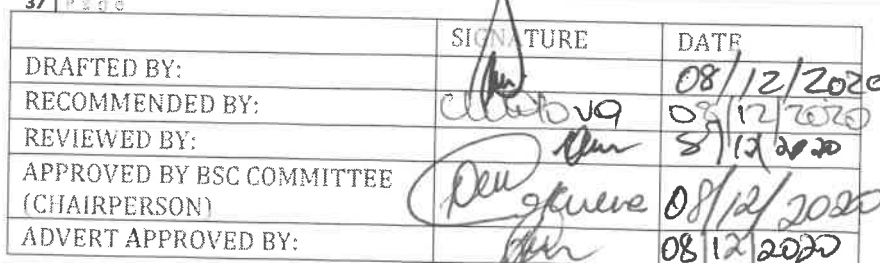 37 | Page
SIGNATURE DATE
DRAFTED BY: 08/12/2020
RECOMMENDED BY: 08/12/2020
REVIEWED BY: 8/12/2020
APPROVED BY BSC COMMITTEE
(CHAIRPERSON) 08/12/2020
ADVERT APPROVED BY: 08/12/2020